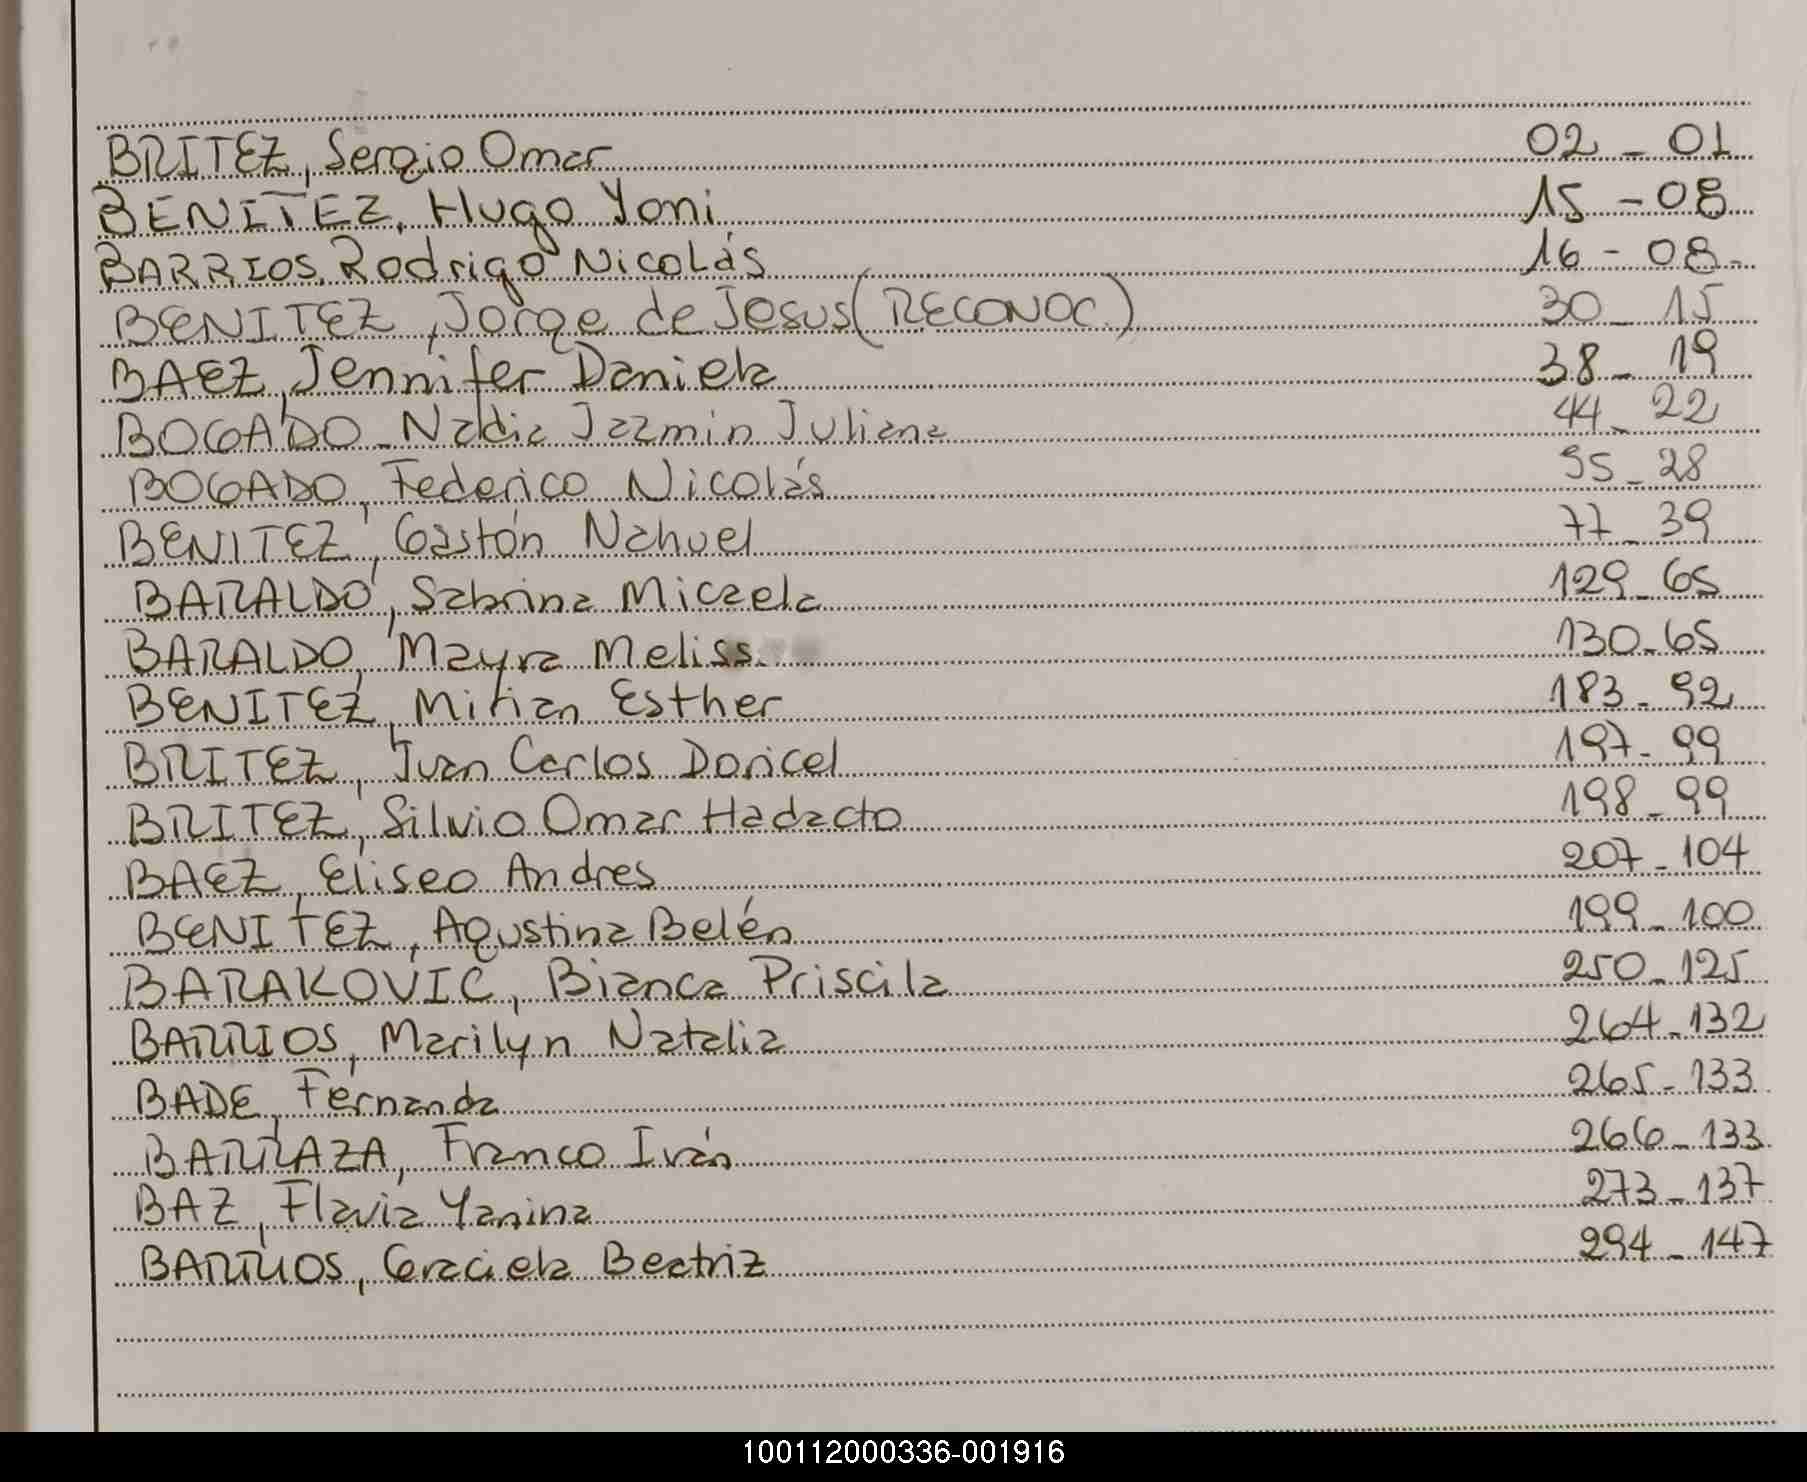 BRITEZ, Sergio Omar 02 - 01
BENITEZ, Hugo Yoni 15 - 08
BARRIOS, Rodrigo Nicolás 16 - 08
BENITEZ, Jorge de Jesus (RECONOC.) 30 - 15
BAEZ, Jennifer Daniela 38 - 19
BOGADO - Nadia Jazmin Juliana 44 - 22
BOGADO, Federico Nicolás 55 - 28
BENITEZ, Gastón Nahuel 77 - 39
BARALDO, Sabrina Micaela 129 - 65
BARALDO, Mayra Meliss 130 - 65
BENITEZ, Mirian Esther 183 - 92
BRITEZ, Juan Carlos Doricel 197 - 99
BRITEZ, Silvio Omar Hadacto 198 - 99
BAEZ, Eliseo Andres 207 - 104
BENITEZ, Agustina Belén 199 - 100
BARAKOVIC, Bianca Priscila 250 - 125
BARRIOS, Marilyn Natalia 264 - 132
BADE, Fernanda 265 - 133
BARRAZA, Franco Iván 266 - 133
BAZ, Flavia Yanina 273 - 137
BARRIOS, Graciela Beatriz 294 - 147
100112000336-001916